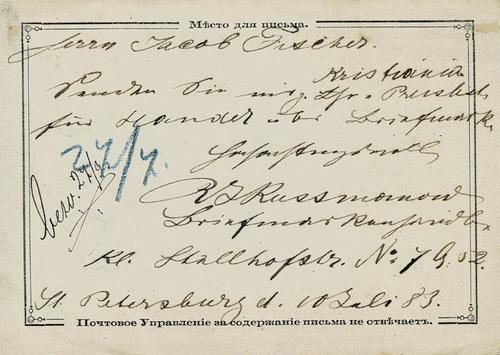 Мѣсто для письма.
Herrn Jacob Fischer.
Kristiania
Senden Sie mir g. Ihr
für Händler Briefmark.
Hochachtungsvoll
Briefmarkenhandler
Kl. Stallhofstr. No 7 Q. 52.
St Petersburg d. 10 Juli 83.
27/7.
Почтовое Управленіе за содержаніе письма не отвѣчаетъ.